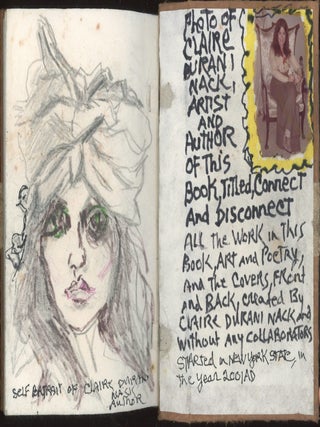 SELF PORTRAIT OF CLAIRE DURANI
NACK
AUTHOR
PHOTO OF
CLAIRE
DURANI
NACK,
ARTIST
AND
AUTHOR
OF THIS
BOOK, TITLED, CONNECT
AND DISCONNECT
ALL THE WORK IN THIS
BOOK, ART AND POETRY,
AND THE COVERS, FRONT
AND BACK, CREATED BY
CLAIRE DURANI NACK AND
WITHOUT ANY COLLABORATORS
STARTED IN NEW YORK STATE, IN
the YEAR 2001AD